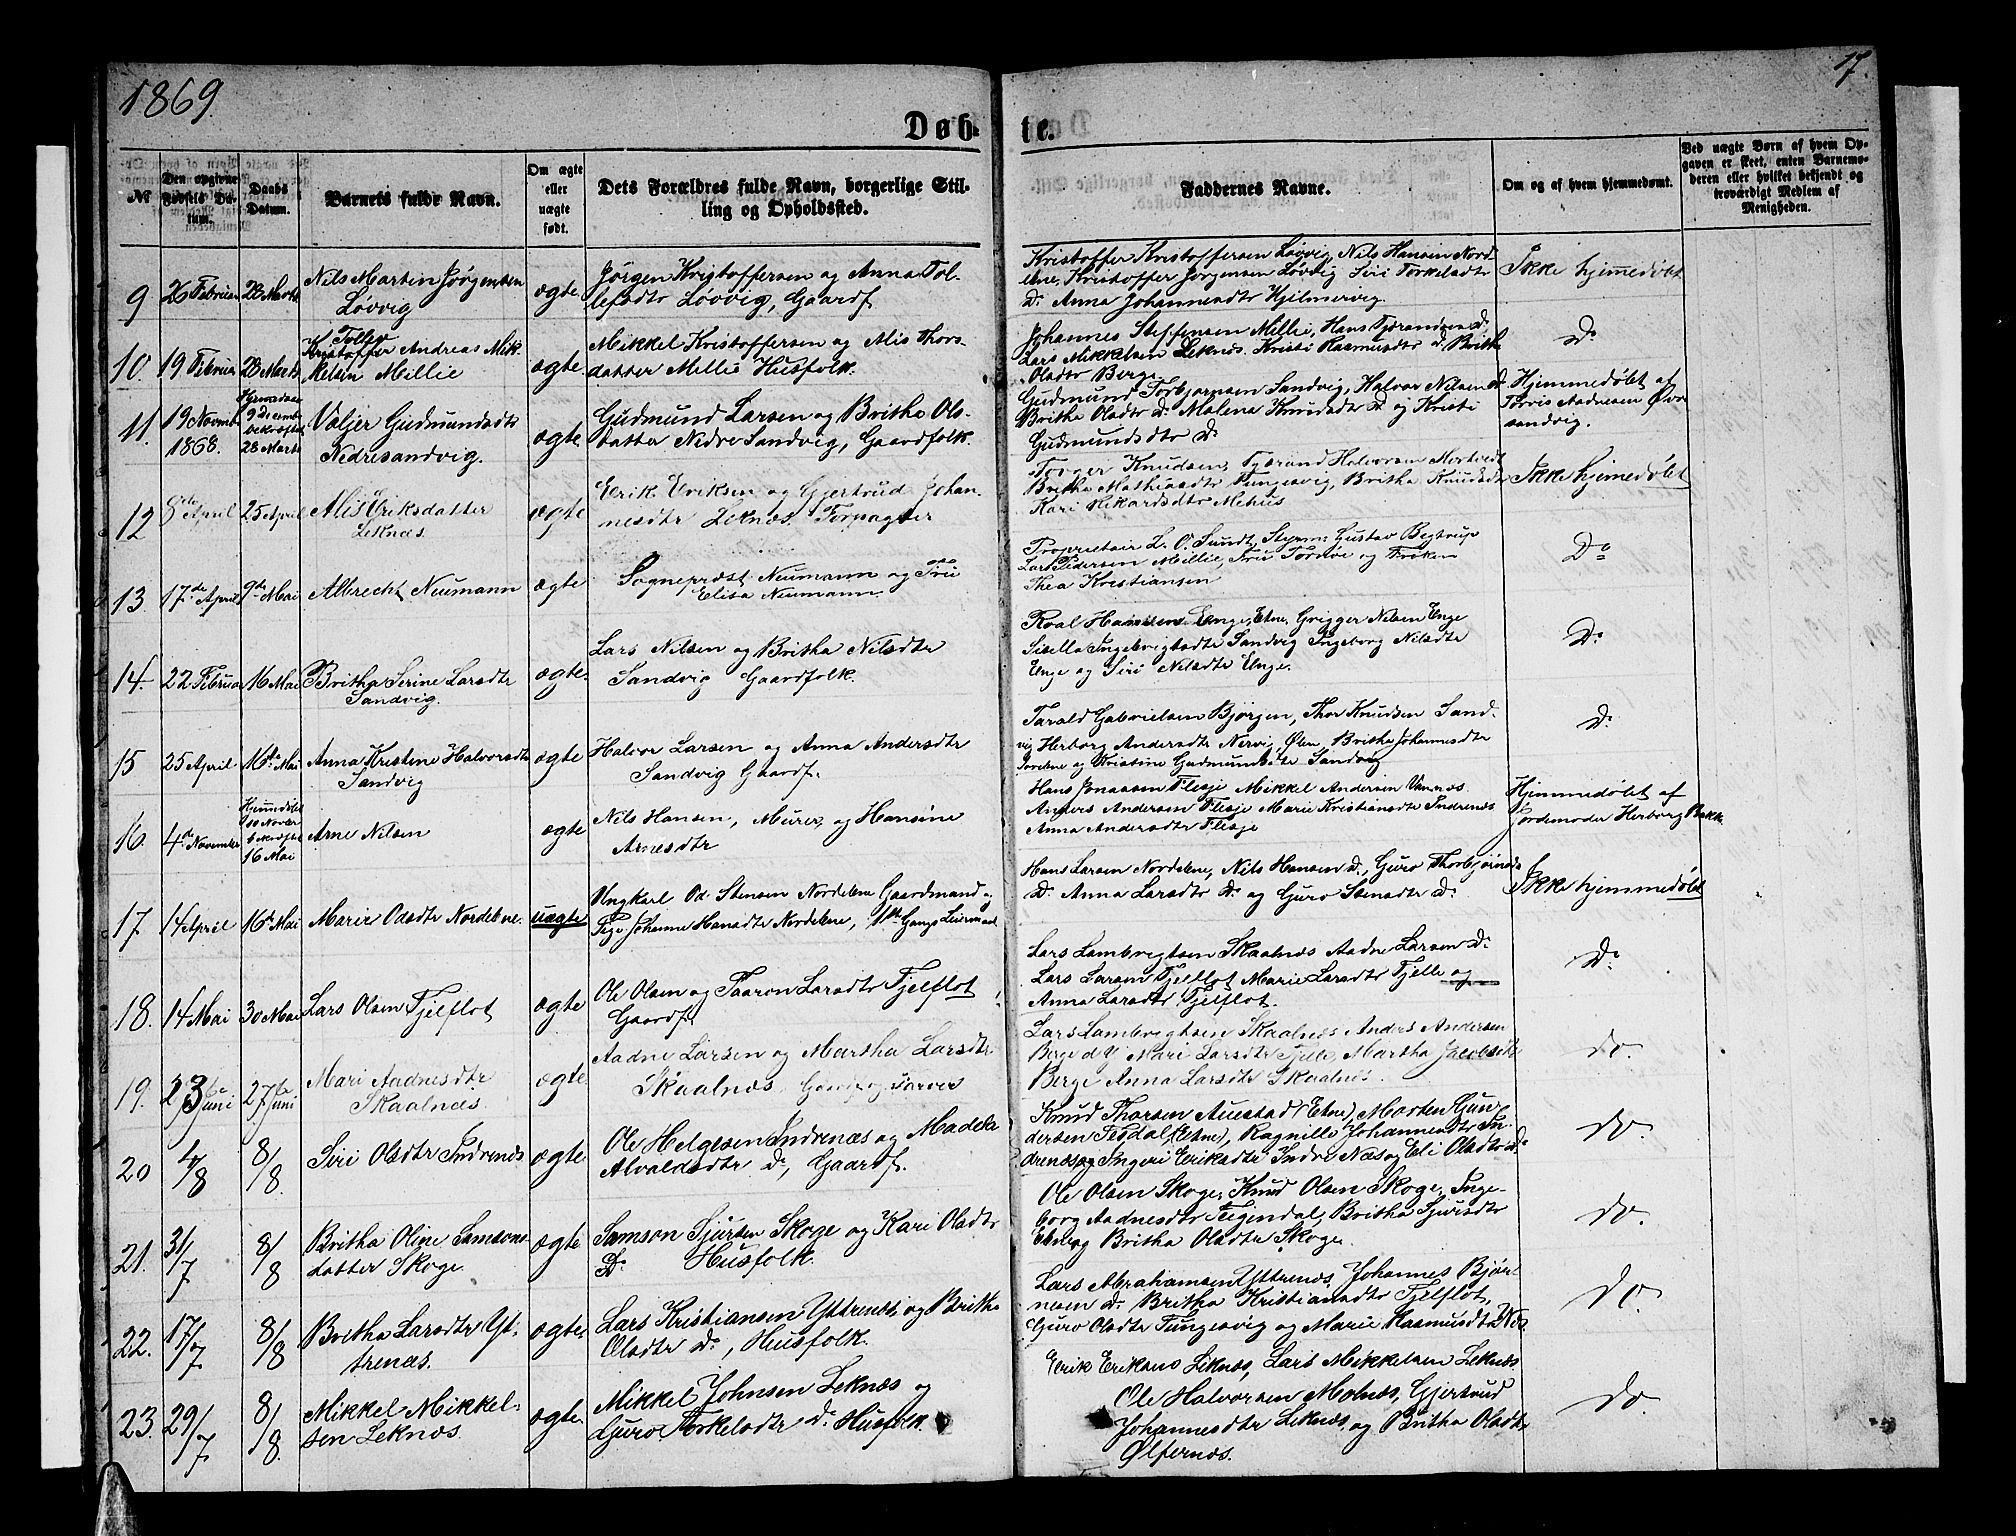 1869.
17.
Døb-
te.
№
Den opgivne
Fødsels Da-
tum.
Daabs
Datum.
Barnets fulde Navn.
Om ægte
eller
uægte
født.
Dets Forældres fulde Navn, borgerlige Stil-
ling og Opholdssted.
Faddernes Navne.
Om og af hvem hjemmedøbt.
Ved uægte Børn af hvem Op-
gaven er skeet, enten Barnemo-
deren eller hvilket bekjendt og
troværdigt Medlem af
Menigheden.
9
26 Februar
28 Marts
Nils Martin Jørgensen
Løvvig
ægte
Jørgen Kristoffersen og Anna Tol-
lefsdtr Løvvig, Gaardf.
Kristoffer Kristoffersen Løvvig, Nils Hansen Nord-
ebne, Kristoffer Jørgensen Løvvig Siri Torkelsdtr
Do Anna Johannesdtr Hjelmervig.
Ikke hjemmedøbt
10.
19 Februar
28 Marts
Tollev
Kristoffer Andreas Mik-
kelsen Millie
ægte
Mikkel Kristoffersen og Alis Thors-
datter Millie Husfolk.
Johannes Steffensen Millie, Hans Tjerandsen Do,
Lars Mikkelsen Leknæs. Kristi Rasmusdtr Do Britha
Olsdtr Berge
Do
11.
19 Novembr
1868.
Hjemmedøbt
9 Decembr
bekræftet
28 Marts
Valjer Gudmundsdtr
Nedresandvig.
ægte
Gudmund Larsen og Britha Ols-
datter Nedre Sandvig, Gaardfolk.
Gudmund Torbjørnsen Sandvig, Halvor Nilsen Do
Britha Olsdtr Do Malena Knudsdtr Do og Kristi
Gudmundsdtr Do
Hjemmedøbt af
Torris Aadnesen Øvre
sandvig.
12
8de April
25 April
Alis Eriksdatter
Leknæs.
ægte
Erik Eriksen og Gjertrud Johan-
nesdtr Leknæs. Forpagter
Torger Knudsen, Tjerand Halvorsen Mortvedt
Britha Mathiasdtr Tungesvig, Britha Knudsdtr
Kari Rikardsdtr Mehus
Ikke hjemedøbt
13.
17de April
9de Mai
Albrecht Neumann
ægte
Sognepræst Neumann og Frue
Elisa Neumann
Proprietair L. O. Sundt, Styrm: Gustav Begtrup
Lars Pedersen Millie, Fru Tordøe og Frøken
Thea Kristiansen
Do
14.
22 Februar
16 Mai
Britha Serine Larsdtr
Sandvig.
ægte.
Lars Nilsen og Britha Nilsdtr
Sandvig Gaardfolk.
Roal Hansen Enge, Etne, Grigger Nilsen Enge
Sisella Ingebrigtsdtr Sandvig Ingeborg Nilsdtr
Enge og Siri Nilsdtr Enge.
Do
15
25 April
16de Mai
Anna Kristine Halvorsdtr
Sandvig
ægte
Halvor Larsen og Anna Andersdtr
Sandvig Gaardf.
Tarald Gabrielsen Bjørgen, Thor Knudsen Sand-
vig Herborg Andersdtr Nervig, Ølen, Britha Johannesdtr
og Kristine Gudmundsdtr Sandvig
Do
16.
4de November
Hjemmedøbt
10 Novbr
bekræftet
16 Mai
Arne Nilsen
ægte
Nils Hansen, Murer, og Hansine
Arnesdtr
Hans Jonassen Flesje Mikkel Andersen Vannæs
Anders Andersen Flesje Marie Kristiansdtr Indrenæs
Anna Andersdtr Flesje
Hjemmedøbt af
Jordemoder Herborg Bakke
17.
14 April
16de Mai
Marie Odsdtr Nordebne.
uægte
Ungkarl Od. Stensen Nordebne Gaardmand og
Pige Johanne Hansdtr Nordebne, 1ste Gangs Leiermaal
Hans Larsen Nordebne, Nils Hansen Do, Guro Thorbjørnsd.
Do Anna Larsdtr Do og Guro Stensdtr Do
Ikke hjemmedøbt
18.
14 Mai
30 Mai
Lars Olsen Fjelflot
ægte
Ole Olsen og Taaron Larsdtr Fjelflot
Gaardf
Lars Lambrigtsen Skaalnæs Aadne Larsen Do
Lars Larsen Fjelflot Marie Larsdtr Fjelle og
Anna Larsdtr Fjelflot.
Do
19.
23 Juni
27de Juni
Mari Aadnesdtr
Skaalnæs.
ægte
Aadne Larsen og Martha Larsdtr
Skaalnæs, Gaardf og Farver
Lars Lambrigtsen Skaalnæs Anders Andersen
Berge Mari Larsdtr Fjelle Martha Jacobsdtr
Berge Anna Larsdtr Skaalnæs.
do.
20
4/8
8/8.
Siri Olsdtr Indrenæs
ægte
Ole Helgesen Indrenæs og Madela
Alvaldsdtr Do, Gaardf.
Knud Thorsen Auestad (Etne), Morten Gun-
dersen Tesdal (Etne), Ragnille Johannesdtr In-
drenæs og Ingeri Eriksdtr Indre Næs og Eli Olsdtr Do
do.
21.
31/7
8/8
Britha Oline Samsons
datter Skoge
ægte
Samson Sjursen Skoge og Kari Olsdtr
Do Husfolk.
Ole Olsen Skoge, Knud Olsen Skoge, Inge-
borg Aadnesdtr Teigendal, Britha Sjursdtr
Ebne og Britha Olsdtr Skoge.
do.
22.
17/7
8/8
Britha Larsdtr Yt-
trenæs.
ægte.
Lars Kristiansen Yttrenæs og Britha
Olsdtr Do, Husfolk.
Lars Abrahamsen Yttrenæs, Johannes Bjør-
nesen Do Britha Kristiansdtr Fjelflot,
Guro Olsdtr Tungesvig og Marie Rasmusdt Næs
do.
23.
29/7
8/8.
Mikkel Mikkel-
sen Leknæs.
ægte.
Mikkel Johnsen Leknæs og
Guro Torkelsdtr Do Husfolk.
Erik Eriksens Leknæs, Lars Mikkelsen Leknæs
Ole Halvorsen Molnæs, Gjertrud
Johannesdtr Leknæs, og Britha Olsdtr
Ølfernæs.
do.